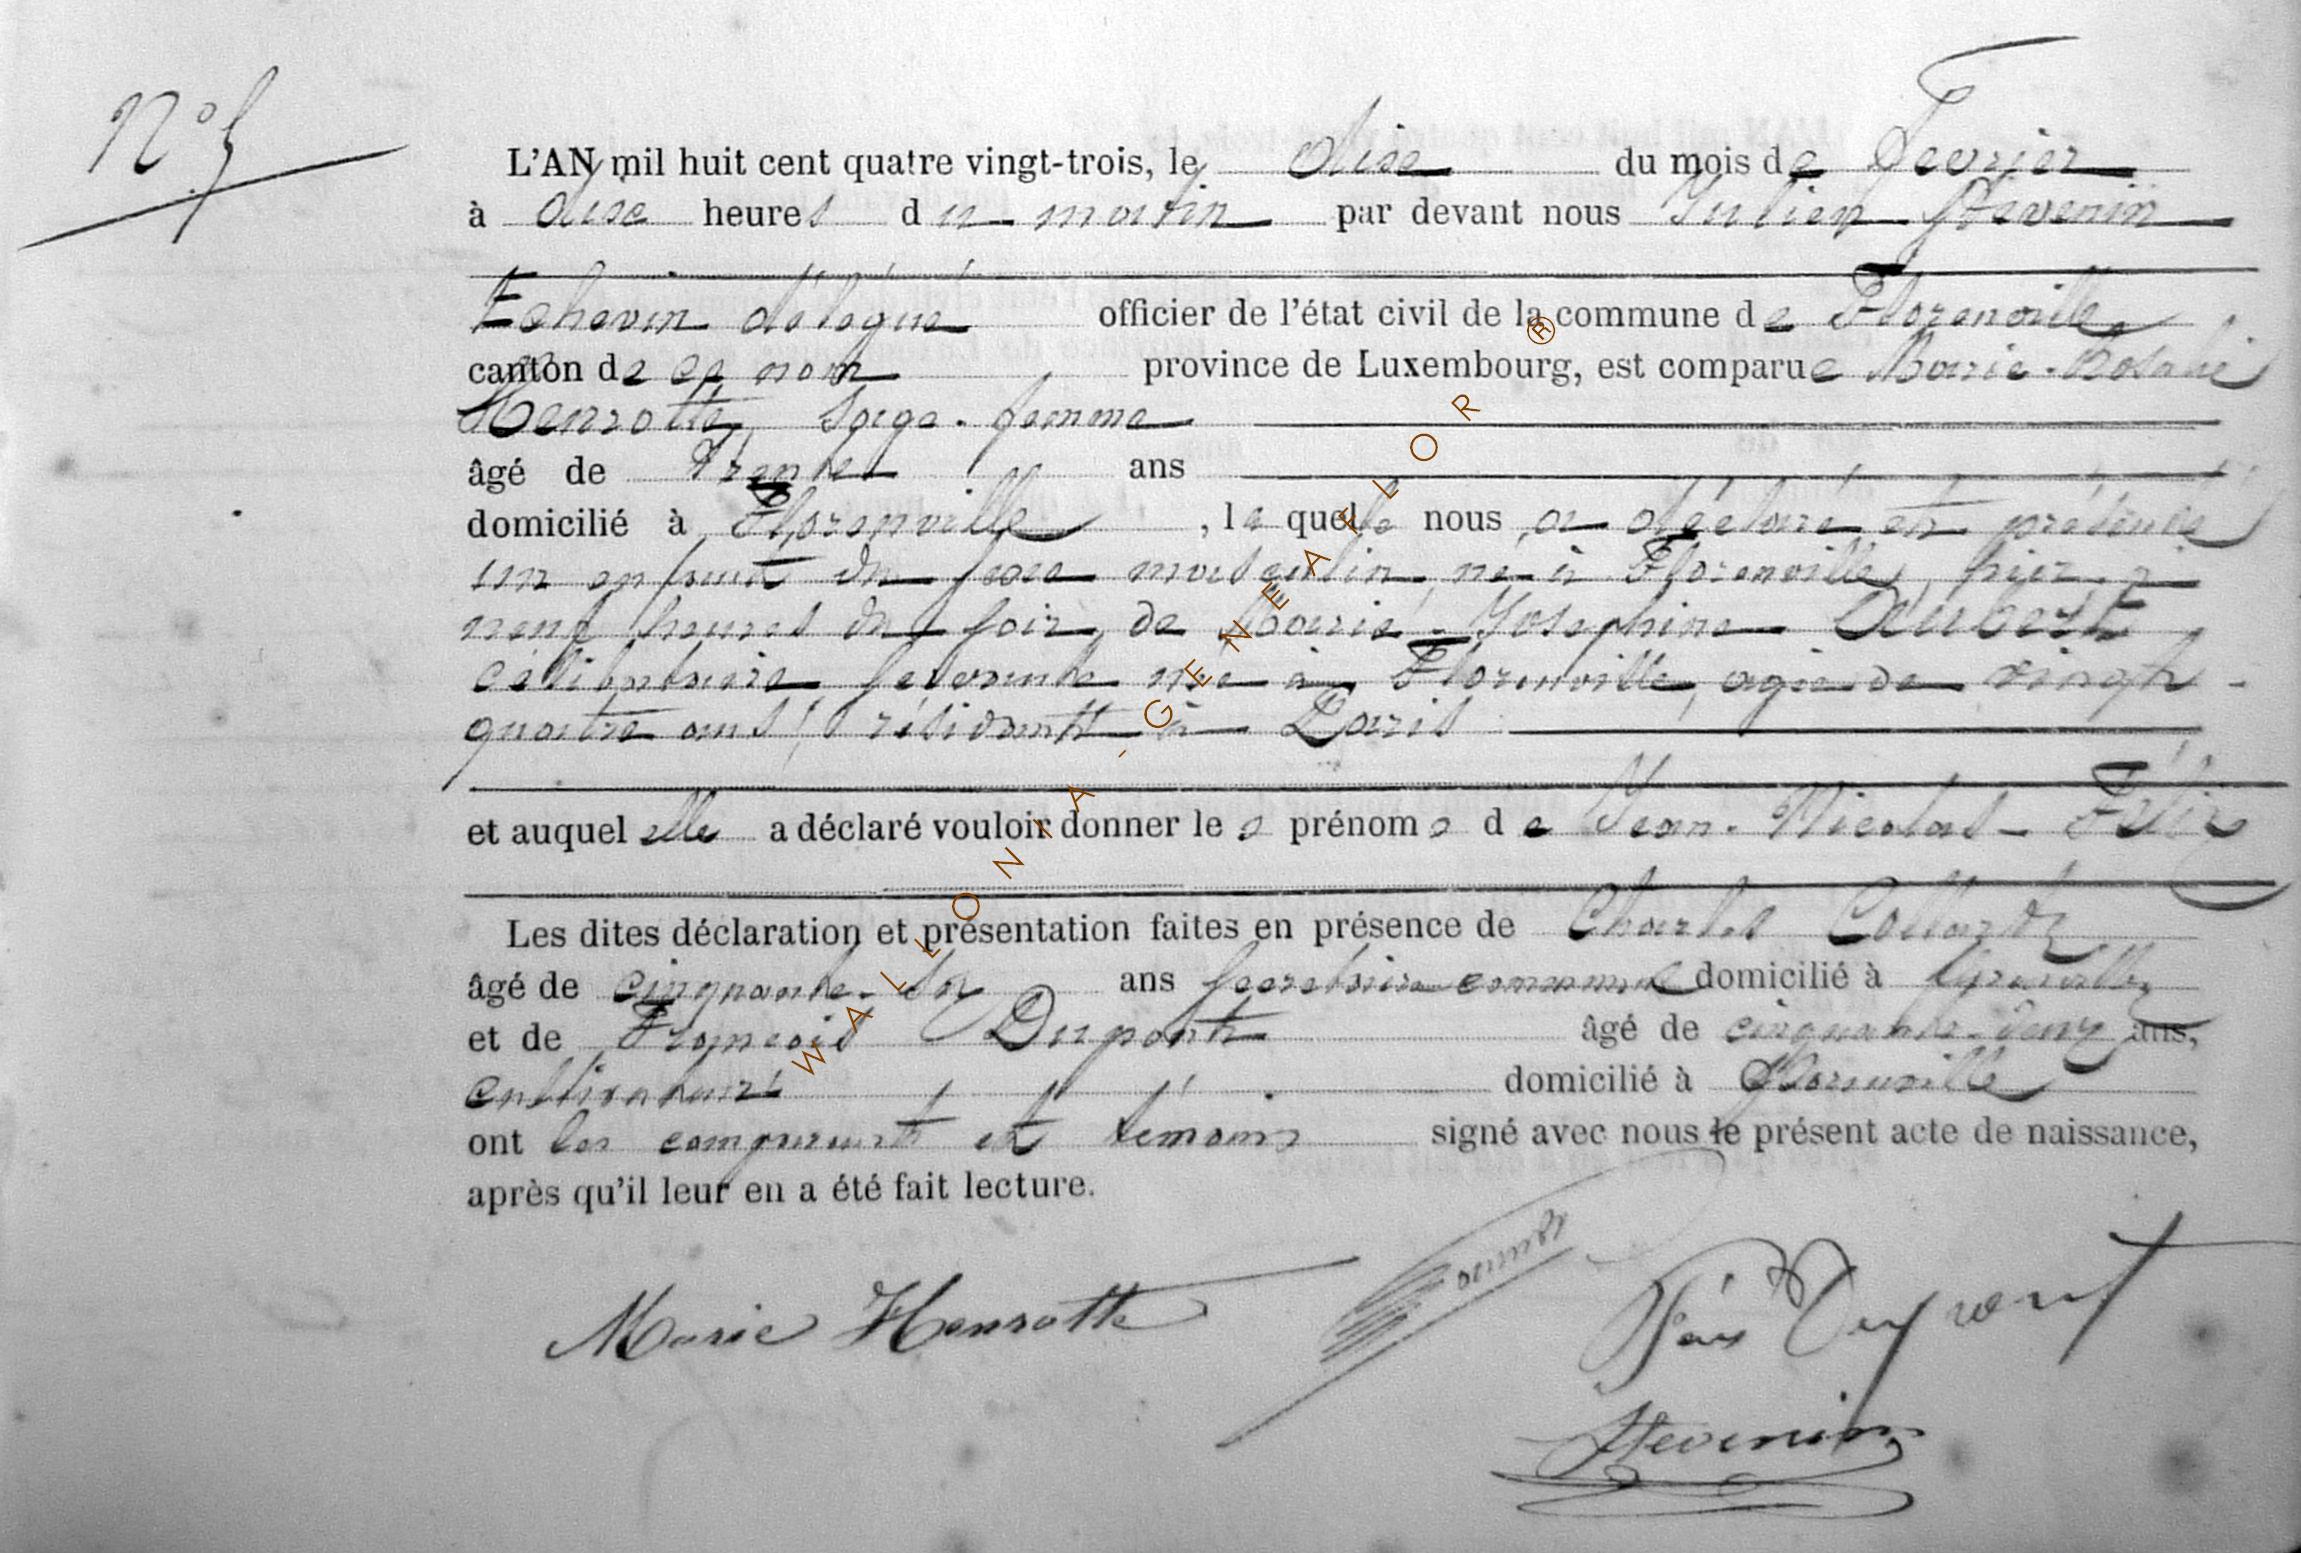 N° 5
L'AN mil huit cent quatre vingt-trois, le dix du mois de Fevrier
à dix heures du matin par devant nous Julien Stevenin
Echevin délégué officier de l'état civil de la commune de Florenville
canton de ce nom province de Luxembourg, est comparue Marie-Rosalie
Henrotte, sage-femme
âgé de Trente ans
domicilié à Florenville, laquelle nous a déclaré et présenté
un enfant du sexe masculin, né à Florenville, hier à
neuf heures du soir, de Marie-Josephine Aubert
célibataire servante née à Florenville, agée de vingt-
quatre ans, résidant à Paris
et auquel elle a déclaré vouloir donner les prénoms de Jean-Nicolas-Félix
Les dites déclaration et présentation faites en présence de Charles Collard
âgé de cinquante-six ans secretaire communal domicilié à Florenville
et de François Dupont âgé de cinquante-deux ans,
cultivateur domicilié à Florenville
ont les comparant et témoins signé avec nous le présent acte de naissance,
après qu'il leur en a été fait lecture.
Marie Henrotte
Dupont
Stevenin
WALLONIA-GENEAFLOR ®